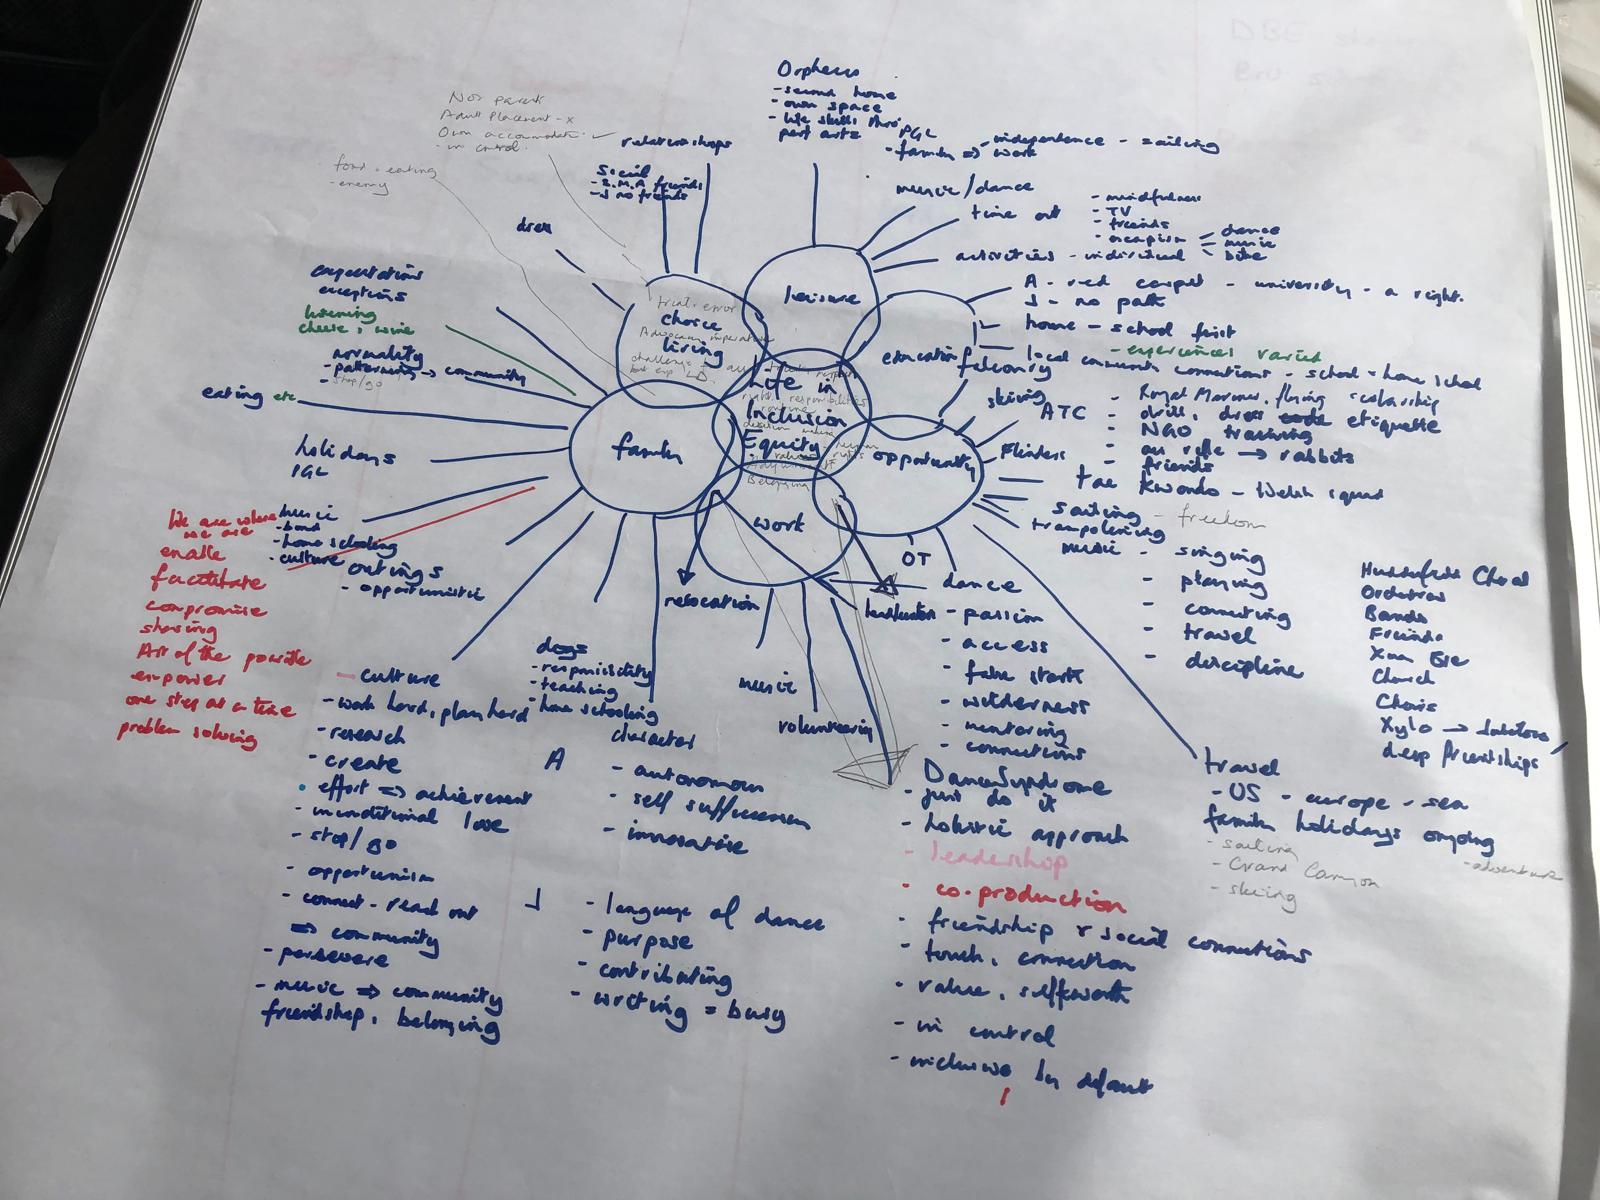 Orpheus
- second home
- own space
- life skills thro'
perf arts
PGL
- family => work
- independence - sailing
Not parents
Adult Placement - x
Own accommodation ✓
- in control.
food - eating
- enemy
relationships
Social
- J no friends
dress
music/dance
time out
- mindfulness
- TV
- friends
- escapism
dance
music
bike
activities - individual
expectations
exceptions
listening
cheese, wine
normality
- patterning → community
- stop/go
eating etc
holidays
PGL
leisure
trial + error
choice
living
Life in
rights, responsibilities
routine
Inclusion
decision making
Equity
Belonging
family
opportunity
work
education
A - red carpet - university - a right.
J - no path
home - school first
- experiences varied
local community connections - school = home school
falconry
skiing
ATC
- Royal Marines, flying scholarship
- drill, dress code etiquette
- NGO training
- air rifle → rabbits
- friends
Flinders
Tae Kwondo - Welsh squad
sailing - freedom
trampolining
music
- singing
- playing
- connecting
- travel
- discipline
Huddersfield Choral
Orchestras
Bands
Friends
Xmas Eve
Church
Choirs
Xylo →
deep friendships
OT
music
- band
- home schooling
- culture
outings
- opportunistic
We are where
we are
enable
facilitate
compromise
sharing
Art of the possible
empower
one step at a time
problem solving
relocation
dance
- passion
- access
- false starts
- wilderness
- mentoring
- connections
DanceSyndrome
- just do it
- holistic approach
- leadership
- co-production
- friendship & social connections
- touch, connection
- value, selfworth
- in control
- inclusive by default
dogs
- responsibility
- teaching
- home schooling
music
volunteering
- culture
- work hard, play hard
- research
- create
• effort => achievement
- unconditional love
- stop/go
- opportunism
- connect - reach out
=> community
- persevere
- music => community
friendship, belonging
character
A
- autonomous
- self sufficiency
- innovative
J
- language of dance
- purpose
- contributing
- writing = busy
travel
- US - europe - sea
family holidays ongoing
- sailing
- Grand Canyon
- skiing
- adventure